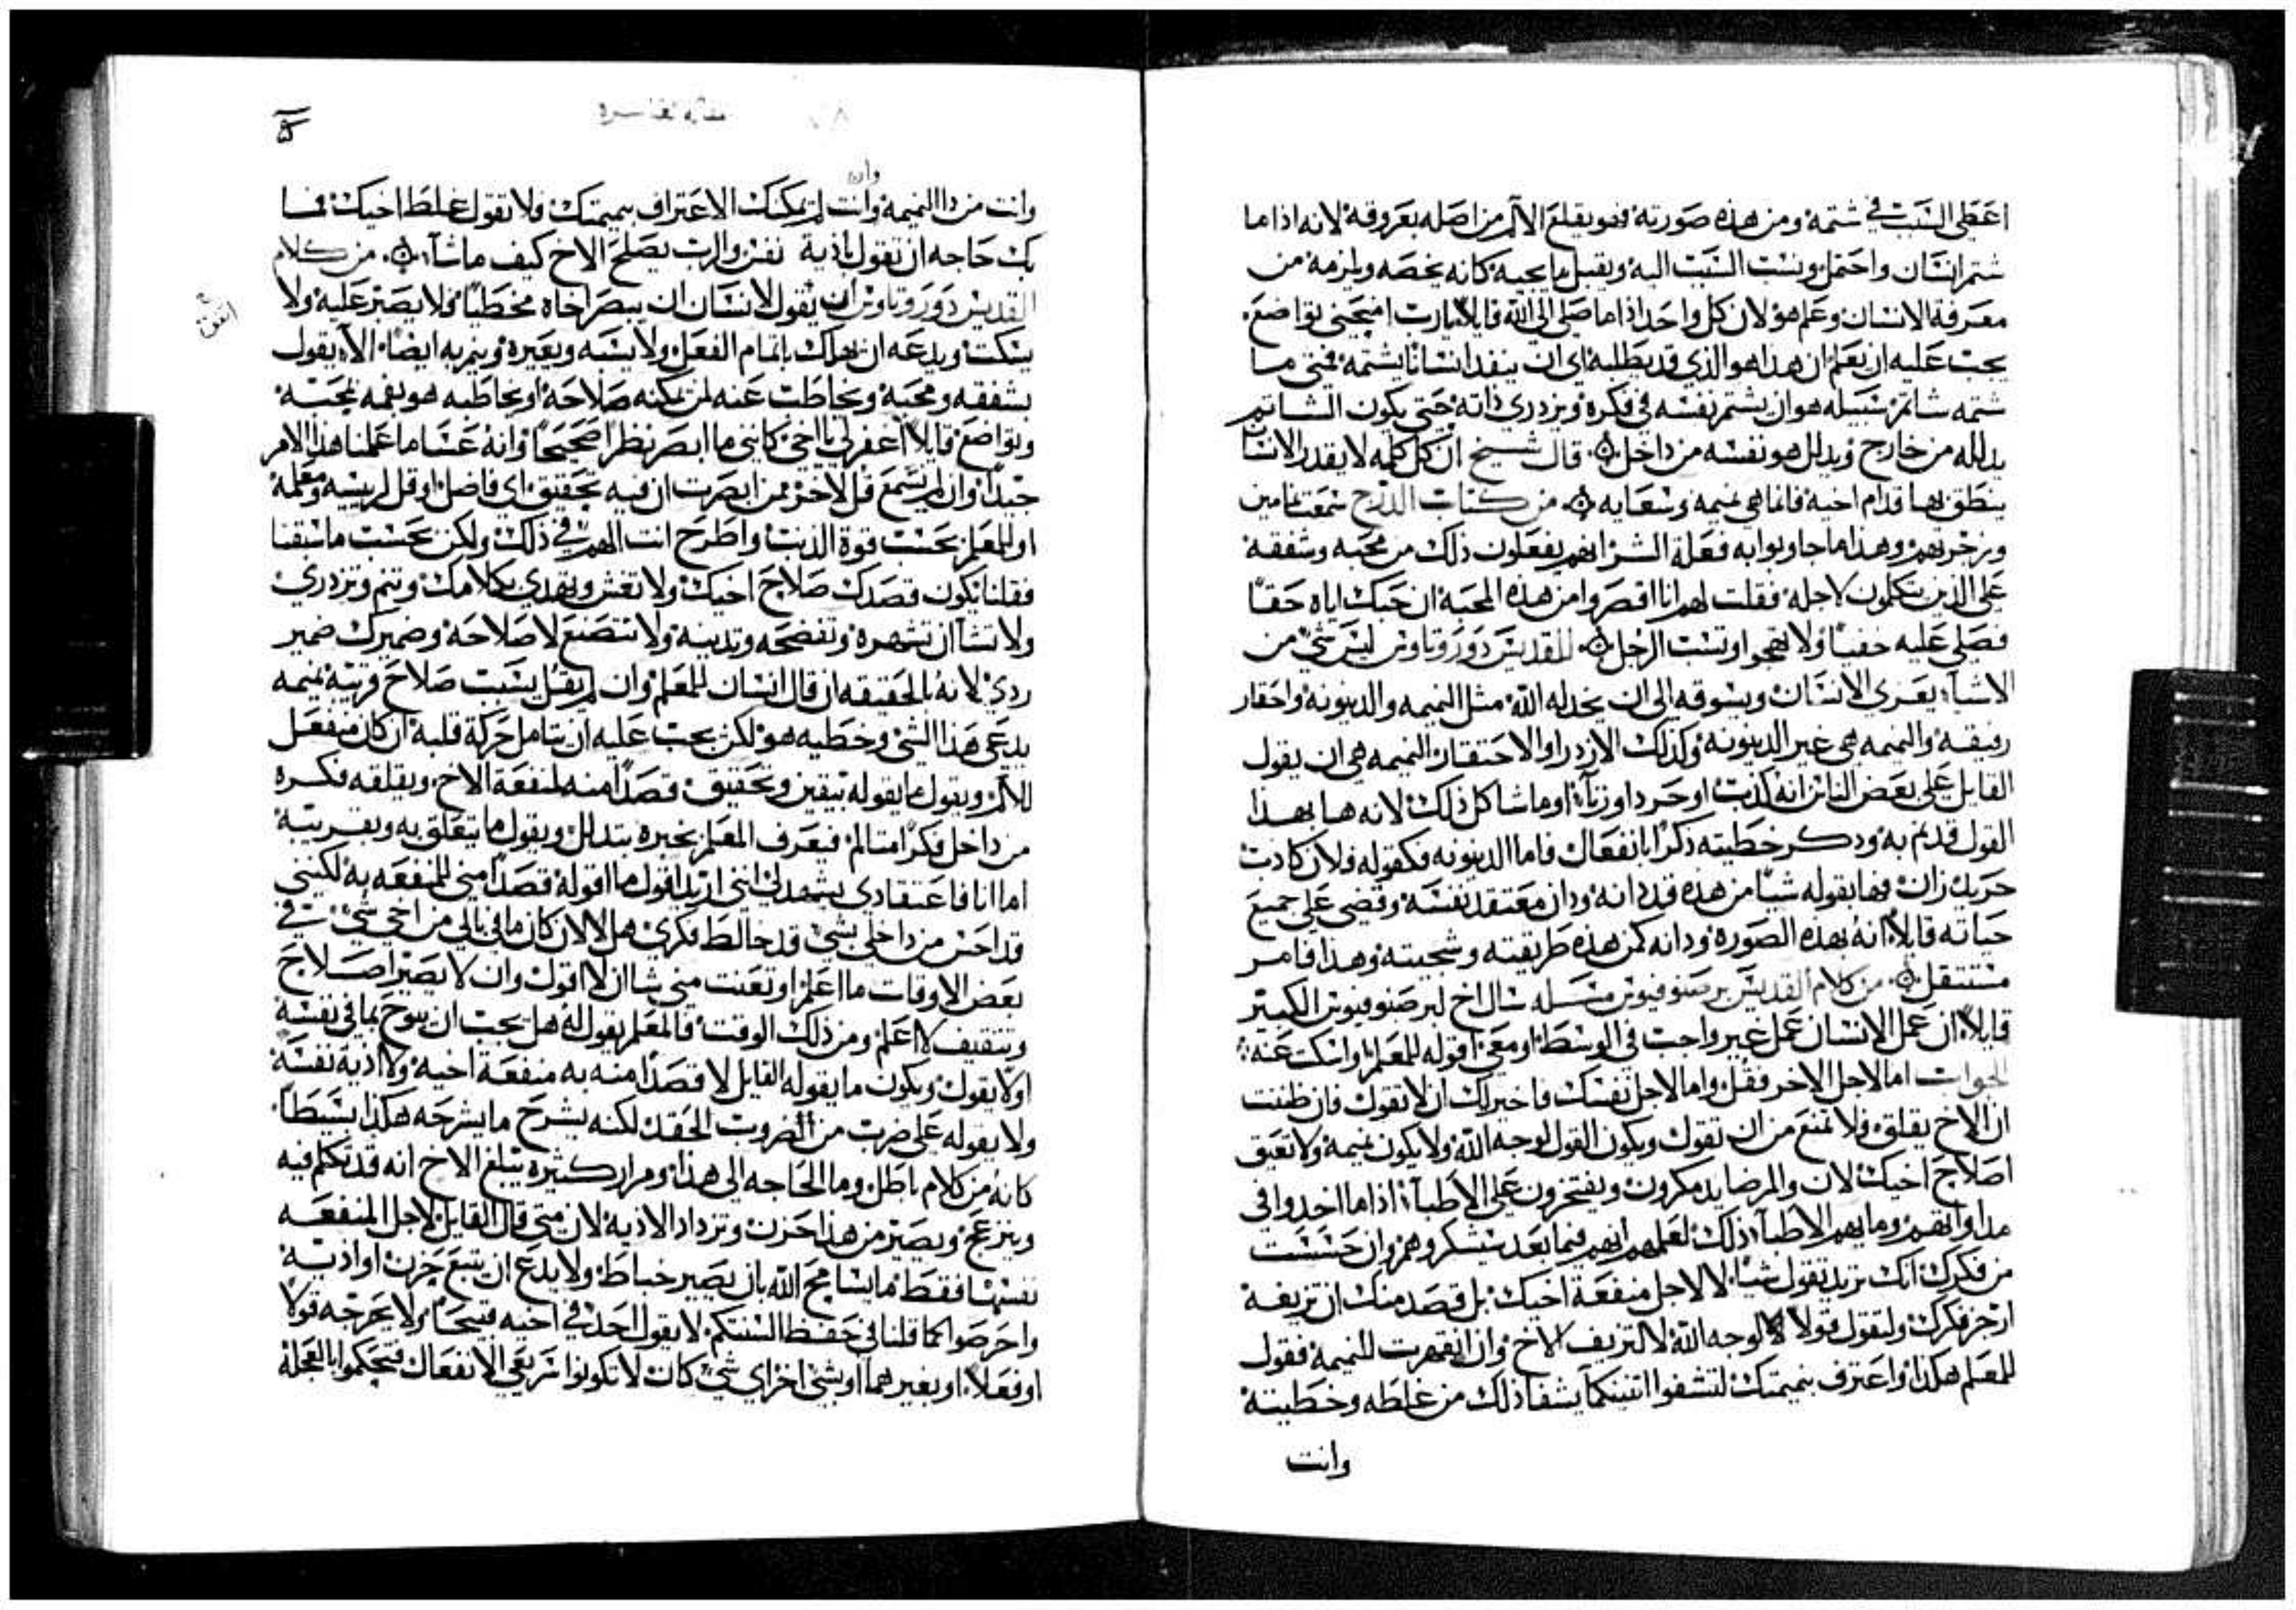 اعطي السبب في شتمه ومن هذه صورته فهو يقلع الالم من اصله بعروقه لانه اذا ما
شتم انسان واحتمل ونسب السبب اليه ويقبل ما يجيه كانه يخصه ويلزمه من
معرفة الانسان وعلم هو لان كل واحد اذا ما صلي الي الله قايلا يارب امنحني تواضع
يجب عليه ان يعلم ان هذا هو الذي قد يطلبه اي ان ينفد انسانا يشتمه فمتي ما
شتمه شاتم سبيله هو ان يشتم نفسه في فكره ويزدري ذاته حتي يكون الشاتم
يدلله من خارج ويدلل هو نفسه من داخل قال شيخ ان كل كلمه لا يقدر الانسان
ينطق بها قدام اخيه فانما هي نميمه وسعايه من كتاب الدرج سمعت نامين
وزجرتهم وهذا ما جاوبوا به فعلة الشر انهم يفعلون ذلك من محبه وشفقه
علي الذين يتكلمون لاجله فقلت لهم انا اقصروا من هذه المحبه ان حبك اياه حقا
فصلي عليه خفيا ولا تهجوا وتسب الرجل للقديس دوروتاوس ليس شي من
الاشيا يعري الانسان ويسوقه الي ان يخدله الله مثل النميمه والدينونه واحقار
رفيقه والنميمه هي غير الدينونه وكذلك الازدرا والاحتقار النميمه هي ان يقول
القايل علي بعض الناس انه كذب او حرد او زنا او ما شاكل ذلك لانه ها بهذا
القول قد نم به ودكر خطيته ذكرا بانفعال فاما الدينونه فكقوله فلان كادب
حريك زان فها بقوله شيا من هذه قد دانه ودان معتقد نفسه وقضي علي جميع
حياته قايلا انه بهذه الصوره ودانه كمن هذه طريقته وسجيته وهذا فامر
مستتقل من كلام القديس برصنوفيوس مسله سال اخ لبرصنوفيوس الكبير
قايلا ان عمل الانسان عمل غير واجب في الوسط او معي اقوله للمعلم او اسكت عنه
الجواب اما لاجل الاخر فقل واما لاجل نفسك فاخير لك ان لا تقول فان ظننت
ان الاخ يقلق فلا تمنع من ان تقول ويكون القول لوجه الله ولا يكون نميمه ولا تعيق
اصلاح اخيك لان والمرضا يدمكرون ويفتخرون علي الاطبا اذا ما اخدوا في
مداواتهم وما يهم الاطبا ذلك لعلمهم انهم فيما بعد سيشكروهم وان حسست
من فكرك انك تريد تقول شيا لا لاجل منفعة اخيك بل قصد منك ان تزيفه
ازجر فكرك ولتقول قولا لوجه الله لا لتزيف الاخ وان انقهرت للنميمه فقول
للمعلم هكذا واعترف بنميمتك لتشفوا اتنينكما يشفا ذلك من غلطه وخطيته
وانت
وانت من دا النميمه وانت لم يمكنك الاعتراف بنميمتك فلا تقول غلط اخيك فما
بك حاجه ان تقول باذية نفس والرب يصلح الاخ كيف ما شا من كلام
القديس دوروتاوس ان يقول لانسان ان يبصر اخاه مخطيا فلا يصبر عليه ولا
يسكت ويدعه ان يهلك باتمام الفعل ولا يشه ويعيره وينم به ايضا الا يقول
بشفقه ومحبه ويخاطب عنه لمن يمكنه صلاحه او يخاطبه هو بفمه بمحبه
وتواضع قايلا اغفر لي يا اخي كانني ما ابصر نظرا صحيحا وانه عسا ما عملنا هذا الامر
جيدا وان لم يسمع قل لاخر ممن ابصرت ان فيه تحقيق اي فاضل او قل لرييسه ومعلمه
او للمعلم بحسب قوة الذنب واطرح انت الهم في ذلك ولكن بحسب ما سبقنا
فقلنا يكون قصدك صلاح اخيك ولا تغش وتهدي بكلامك وتنم وتزدري
ولا تشا ان تشهره وتفضحه وتدينه ولا تتصنع لاصلاحه وضميرك ضمير
ردي لانه بالحقيقه ان قال انسان للمعلم وان لم يقل بسبب صلاح قريبه نميمه
يدعي هذا الشي وخطيه هو لكن يجب عليه ان يتامل حركة قلبه ان كان منفعل
للالم ويقول ما يقوله بيقين وتحقيق قصدا منه لمنفعة الاخ ويقلقه فكره
من داخل فكر امتالم فيعرف المعلم بخبره بتدلل ويقول ما يتعلق به وبقريبه
اما انا فاعتقادي يشهد لي انني اريد اقول ما اقوله قصدا مني للمنفعه به لكنني
قد احس من داخلي بشي قد خالط فكري هل لالان كان ما في بالي من اخي شي في
بعض الاوقات ما اعلم او تعنت مني شا ان لا اقول وان لا يصير اصلاح
وتتقيف لا اعلم ومن ذلك الوقت فالمعلم يقول له هل يجب ان يبوح بما في نفسه
او لا يقول ويكون ما يقوله القايل لا قصدا منه به منفعة اخيه ولا اذية نفسه
ولا يقوله علي ضرب من الضروب الحقد لكنه يشرح ما يشرحه هكذا بسيطا
كانه من كلام باطل وما الحاجه الي هذا ومرار كثيره يبلغ الاخ انه قد تكلم فيه
وينزعج ويصير من هذا حزن وتزداد الاذيه لان متي قال القايل لاجل المنفعه
نفسها فقط ما يسامح الله بان يصير خباط ولا يدع ان يتبع حزن او اديه
واحرصوا كما قلنا في حفظ السنتكم لا يقول احد في اخيه قبيحا ولا يحرجه قولا
او فعلا او بغيرهما او بشي اخر اي شي كان لا تكونوا سريعي الانفعال فتحكموا بالعجله